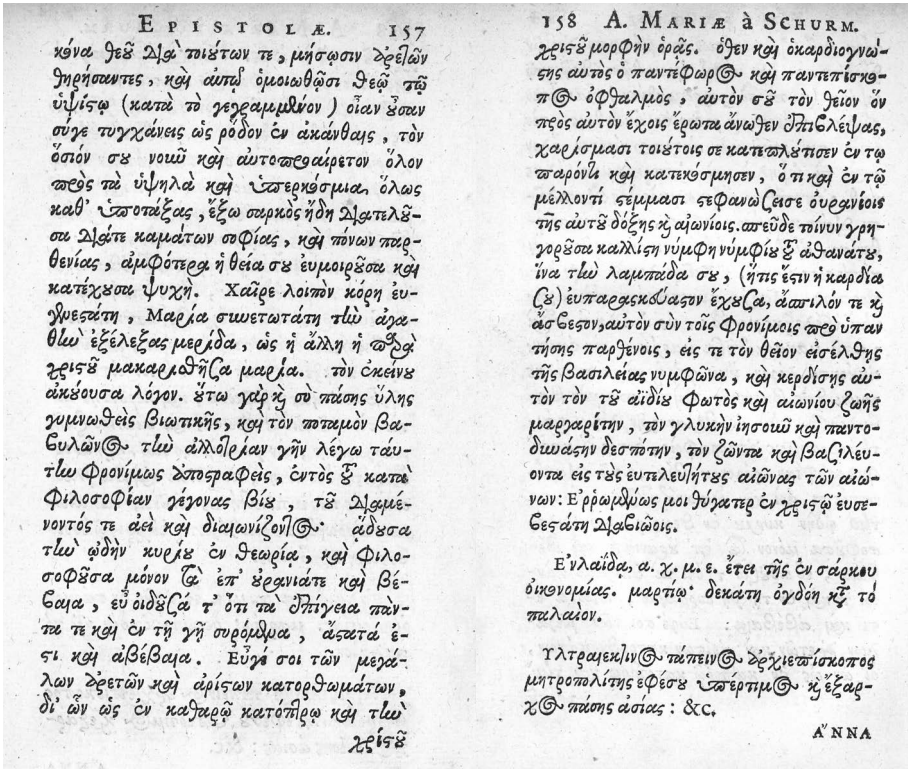 EPISTOLÆ. 157
κόνα θεοῦ διὰ τοιούτων τε, μήσωσιν ἀρετῶν
θηρήσαντες, καὶ αυτῷ ὁμοιωθῶσι θεῷ τῷ
ὑψίςῳ (κατὰ τὸ γεγραμμένον) οἷαν οὖσαν
σύγε τυγχάνεις ὡς ρόδον ἐν ακάνθαις, τὸν
ὅσιόν σου νοῦν καὶ αυτοπροαίρετον ὅλον
πρὸς τὰ ὑψηλὰ καὶ ὑπερκόσμια, ὅλως
καθ' ὑποτάξας, ἔξω σαρκὸς ἤδη διατελοῦ-
σα διάτε καμάτων σοφίας, καὶ πόνων παρ-
θενίας, αμφότερα ἡ θεία σου ευμοιροῦσα καὶ
κατέχουσα ψυχή. Χαῖρε λοιπὸν κόρη ευ-
γενεςάτη, Μαρία συνετωτάτη τὴν ἀγα-
θὴν ἐξέλεξας μερίδα, ὡς ἡ ἄλλη ἡ παρὰ
χριςοῦ μακαριοθῆζα μαρία. τὸν ἐκείνου
ἀκούουσα λόγον. οὕτω γὰρ κ̀ σὺ πάσης ὕλης
γυμνωθεὶς βιωτικῆς, καὶ τὸν ποταμὸν βα-
βυλῶνος τὴν ἀλλοτρίαν γῆν λέγω ταύ-
την φρονίμως ἀποςραφεὶς, ἐντὸς τοῦ κατὰ
φιλοσοφίαν γέγονας βίου, τοῦ διαμέ-
νοντός τε ἀεὶ καὶ διαιωνίζοντος ἄδουσα
τὴν ᾠδὴν κυρίου ἐν θεωρίᾳ, καὶ φιλο-
σοφοῦσα μόνον τὰ ἐπ' οὐράνιάτε καὶ βέ-
βαια, εὖ οἰδοῦζά τ' ὅτι τὰ ἐπίγεια πάν-
τα τε καὶ ἐν τῇ γῇ συρόμενα, ἄςατά ἐ-
ςι καὶ αβέβαια. Εὖγέ σοι τῶν μεγά-
λων ἀρετῶν καὶ ἀρίςων κατορθωμάτων,
δι' ὧν ὡς ἐν καθαρῷ κατόπτρῳ καὶ τὴν
χριςοῦ
158 A. MARIÆ à SCHURM.
χριςοῦ μορφὴν ὁρᾷς. ὅθεν καὶ ὁ καρδιογνώ-
ςης αὐτὸς ὁ παντέφορος καὶ παντεπίσκο-
πος ὀφθαλμὸς, αὐτόν σου τὸν θεῖον ὃν
πρὸς αὐτὸν ἔχοις ἔρωτα ἄνωθεν ἐπιβλέψας,
χαρίσμασι τοιούτοις σε κατεπλούτισεν ἐν τῳ
παρόντι καὶ κατεκόσμησεν, ὅτι καὶ ἐν τῷ
μέλλοντί ςέμμασι ςεφανώζεισε ουρανίοις
τῆς αυτοῦ δόξης κ̀ αἰωνίοις. σπεῦδε τοίνυν γρη-
γοροῦσα καλλίςη νύμφη νυμφίου τοῦ ἀθανάτου,
ἵνα τὴν λαμπάδα σου, (ἥτις ἔςιν ἡ καρδία
ζου) ευπαρασκεύαςον ἔχουζα, ἄσπιλόν τε κ̀
ἄσβεςον, αὐτὸν σὺν τοῖς φρονίμοις πρὸ ὑπαν
τήσης παρθένοις, εἰς τε τὸν θεῖον εἰσέλθης
τῆς βασιλείας νυμφῶνα, καὶ κερδίσης αυ-
τὸν τὸν τοῦ αϊδίου φωτὸς καὶ αἰωνίου ζωῆς
μαργαρίτην, τὸν γλυκὴν ἰησοῦν καὶ παντο-
δυνάσην δεσπότην, τὸν ζῶντα καὶ βαζιλέυ-
οντα εἰς τοὺς ἀτελευτήτους αἰῶνας τῶν αἰώ-
νων: Ἐῤῥωμένως μοι θύγατερ ἐν χριςῷ ἐυσε-
βεςάτη διαβιῴοις.
Ενλαίδα, α. χ. μ. ε. ἔτει τῆς ἐν σάρκου
οἰκονομίας. μαρτίῳ δεκάτη ὀγδόη κατὰ τὸ
παλαίον.
Υλτραιεκτίνος τάπεινος ἀρχιεπίσκοπος
μητροπολίτης ἐφέσου ὑπέρτιμος κ̀ ἔξαρ-
χος πάσης ἀσίας: &c.
ἌΝΝΑ